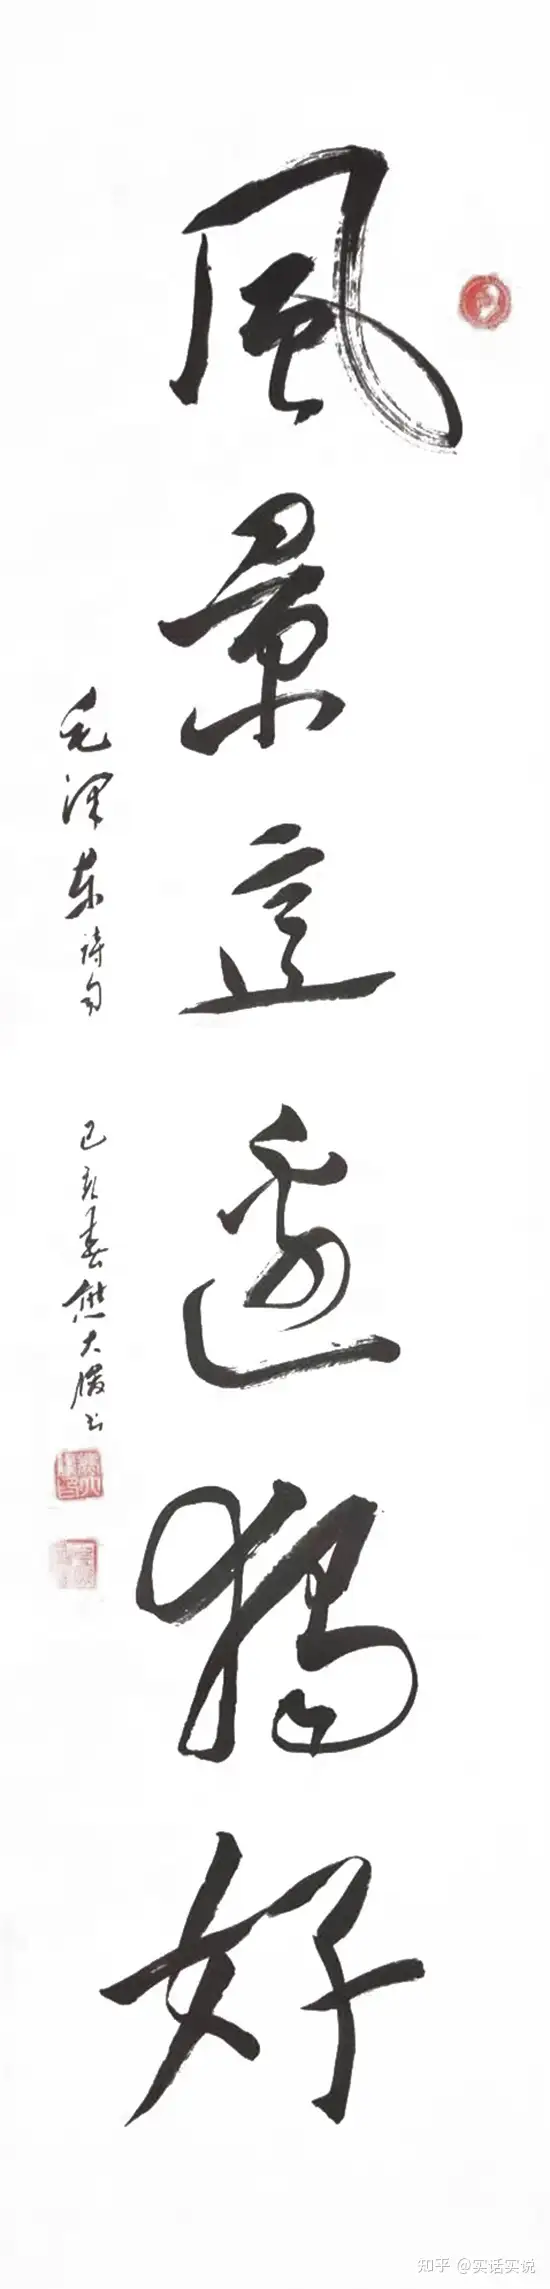 風景這邊獨好
毛泽东诗句
己亥春熊大勝书
知乎 @实话实说